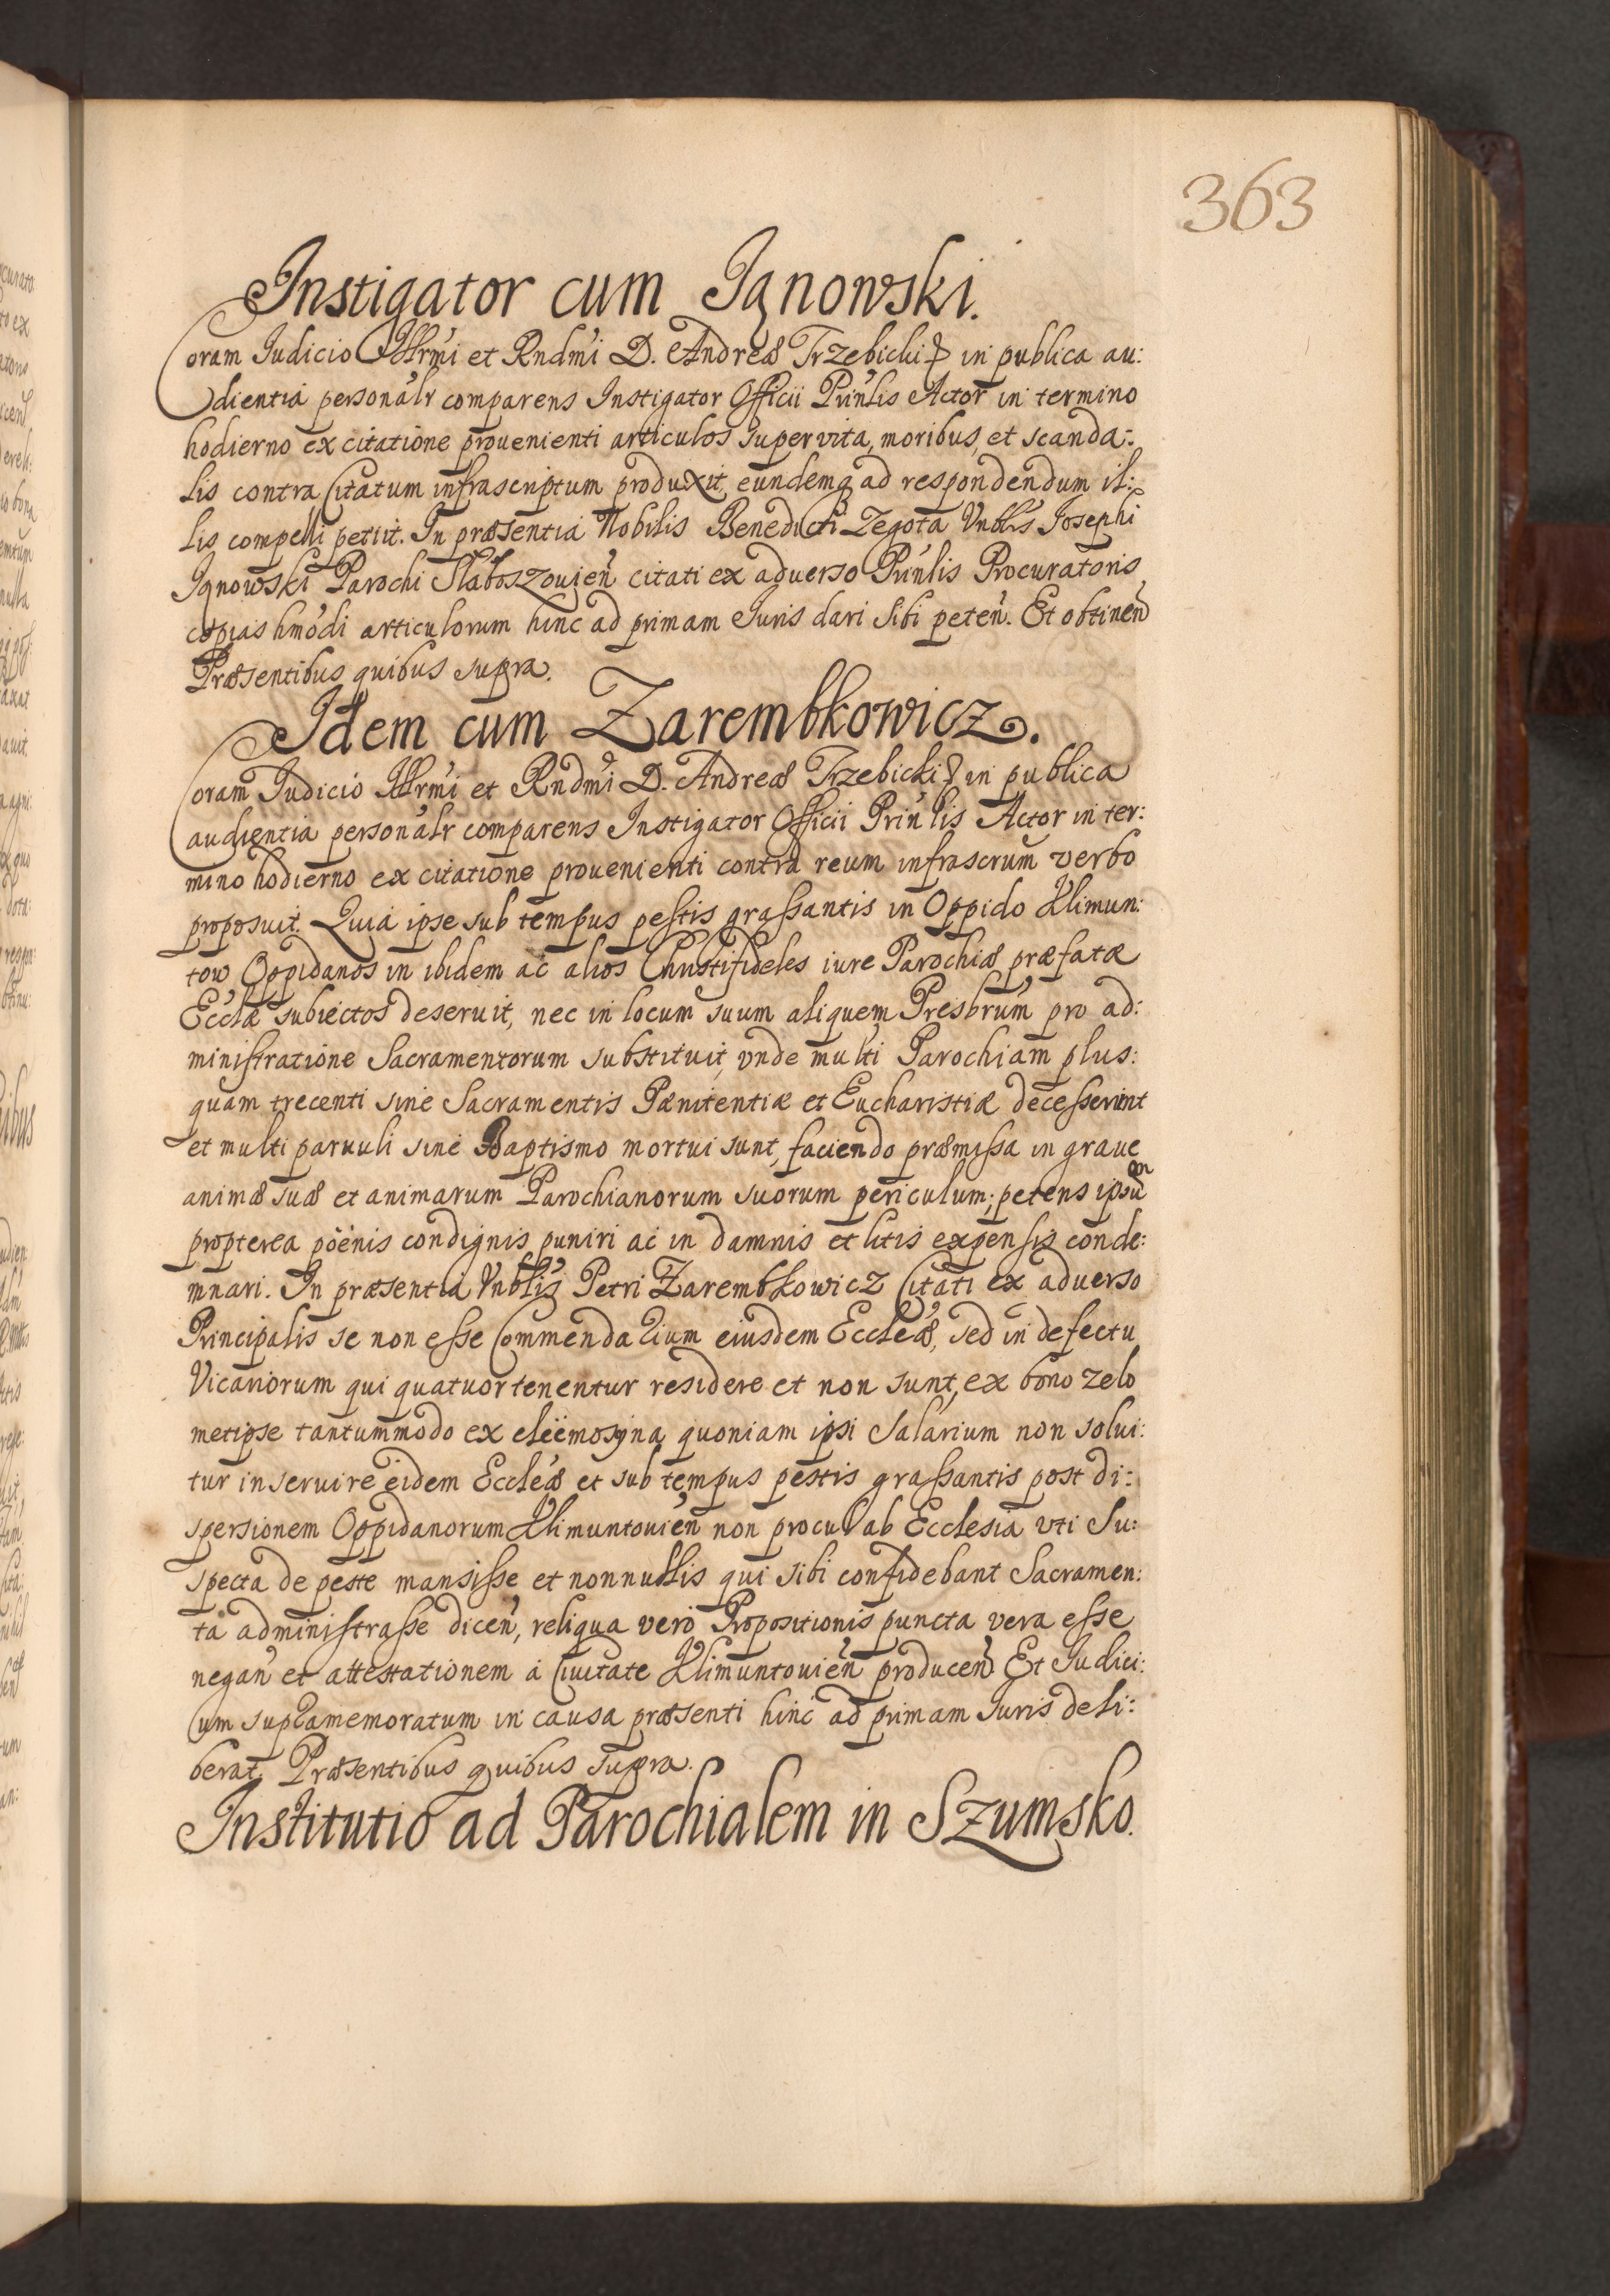 363
Instigator cum Jgnowski.
Coram Judicio Illrmi et Rndmi D. Andreæ Trzebicki in publica au:
dientia personalr comparens Instigator Officii Prinlis Actor in termino
hodierno ex citatione provenienti articulos super vita, moribus, et scanda:
lis contra Citatum infrascriptum produxit, eundemq ad respondendum il:
lis compelli petiit. In præsentia Nobilis Benedicti Zegota Vnblis Josephi
Jgnowski Parochi Slaboszovien citati ex adverso Prinlis Procuratoris
copias hmodi articulorum hinc ad primam Juris dari sibi peten. Et obtinen
Præsentibus quibus supra.
Idem cum Zarembkowicz.
Coram Judicio Illrmi et Rndmi D. Andreæ Trzebicki in publica
audientia personalr comparens Instigator Officii Prinlis Actor in ter:
mino hodierno ex citatione provenienti contra reum infrascrum verbo
proposuit. Quia ipse sub tempus pestis grassantis in Oppido Klimun:
tow Oppidanos in ibidem ac alios Christifideles iure Parochiæ præfatæ
Eccla subiectos deseruit, nec in locum suum aliquem Presbrum pro ad:
ministratione Sacramentorum substituit, vnde multi Parochiam plus:
quam trecenti sine Sacramentis Pænitentiæ et Eucharistiæ decesserunt
et multi paruuli sine Baptismo mortui sunt, faciendo præmissa in graue
animæ suæ et animarum Parochianorum suorum periculum; petens ipsum
propterea pöenis condignis puniri ac in damnis et litis expensis conde:
mnari. In præsentia Vnblis Petri Zarembkowicz Citati ex aduerso
Principalis se non esse Commendarium eiusdem Eccleæ, sed in defectu
Vicariorum qui quatuor tenentur residere et non sunt, ex bono zelo
metipse tantummodo ex eleëmosyna quoniam ipsi Salarium non solui:
tur inseruire eidem Eccleæ et sub tempus pestis grassantis post di:
spersionem Oppidanorum Klimuntouien non procul ab Ecclesia vti Su:
specta de peste mansisse et nonnullis qui sibi confidebant Sacramen:
ta administrasse dicen, reliqua vero Propositionis puncta vera esse
negan et attestationem a Ciuitate Klimuntouien producen Et Judici:
um supramemoratum in causa præsenti hinc ad primam Juris deli:
berat. Præsentibus quibus supra.
Institutio ad Parochialem in Szumsko.